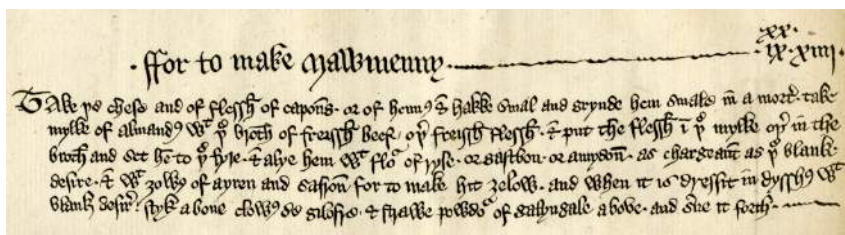 xx.
· ffor to make Mawmenny · ix · xiiii ·
Take þe chese and of flessh of capons · or of hennꝰ & hakke smal and grynde hem smale in a mort͛ · take
mylke of almandꝰ wᵗ þᵉ broth of freissh beef · oþ͛ freissh flessh · & put the flessh ī þᵉ mylke oþ͛ in the
broth and set hē to þᵉ fyre · & alye hem wᵗ floᵘ of ryse · or gastbon · or amydon̄ · as chargeant as þᵉ blank
desire · & wᵗ ȝolkꝰ of ayren and safron̄ for to make hit ȝelow · and when it is dressit in dysshꝰ wᵗ
blank desir͛ · styk aboue clowꝰ de gilofre · & strawe powdoᵘ of galyngale aboue · and s͛ue it forth ·